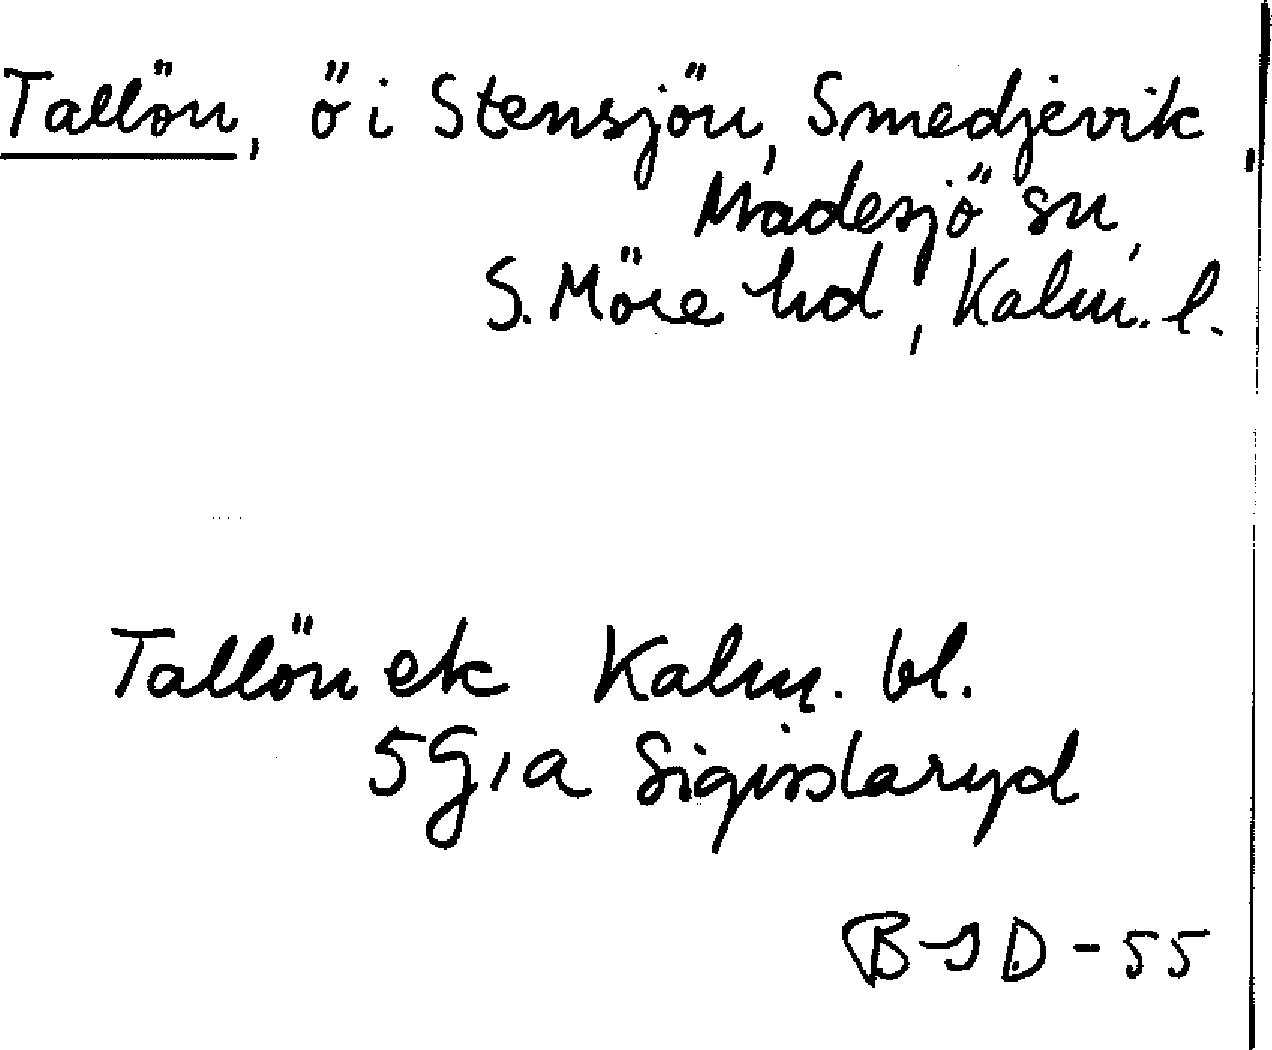 Tallön, ö i Stensjön, Smedjevik,
Madesjö sn,
S. Möre hd, Kalm. l.
Tallön ek Kalm. bl.
5 G, a Sigisslaryd
BJD-55